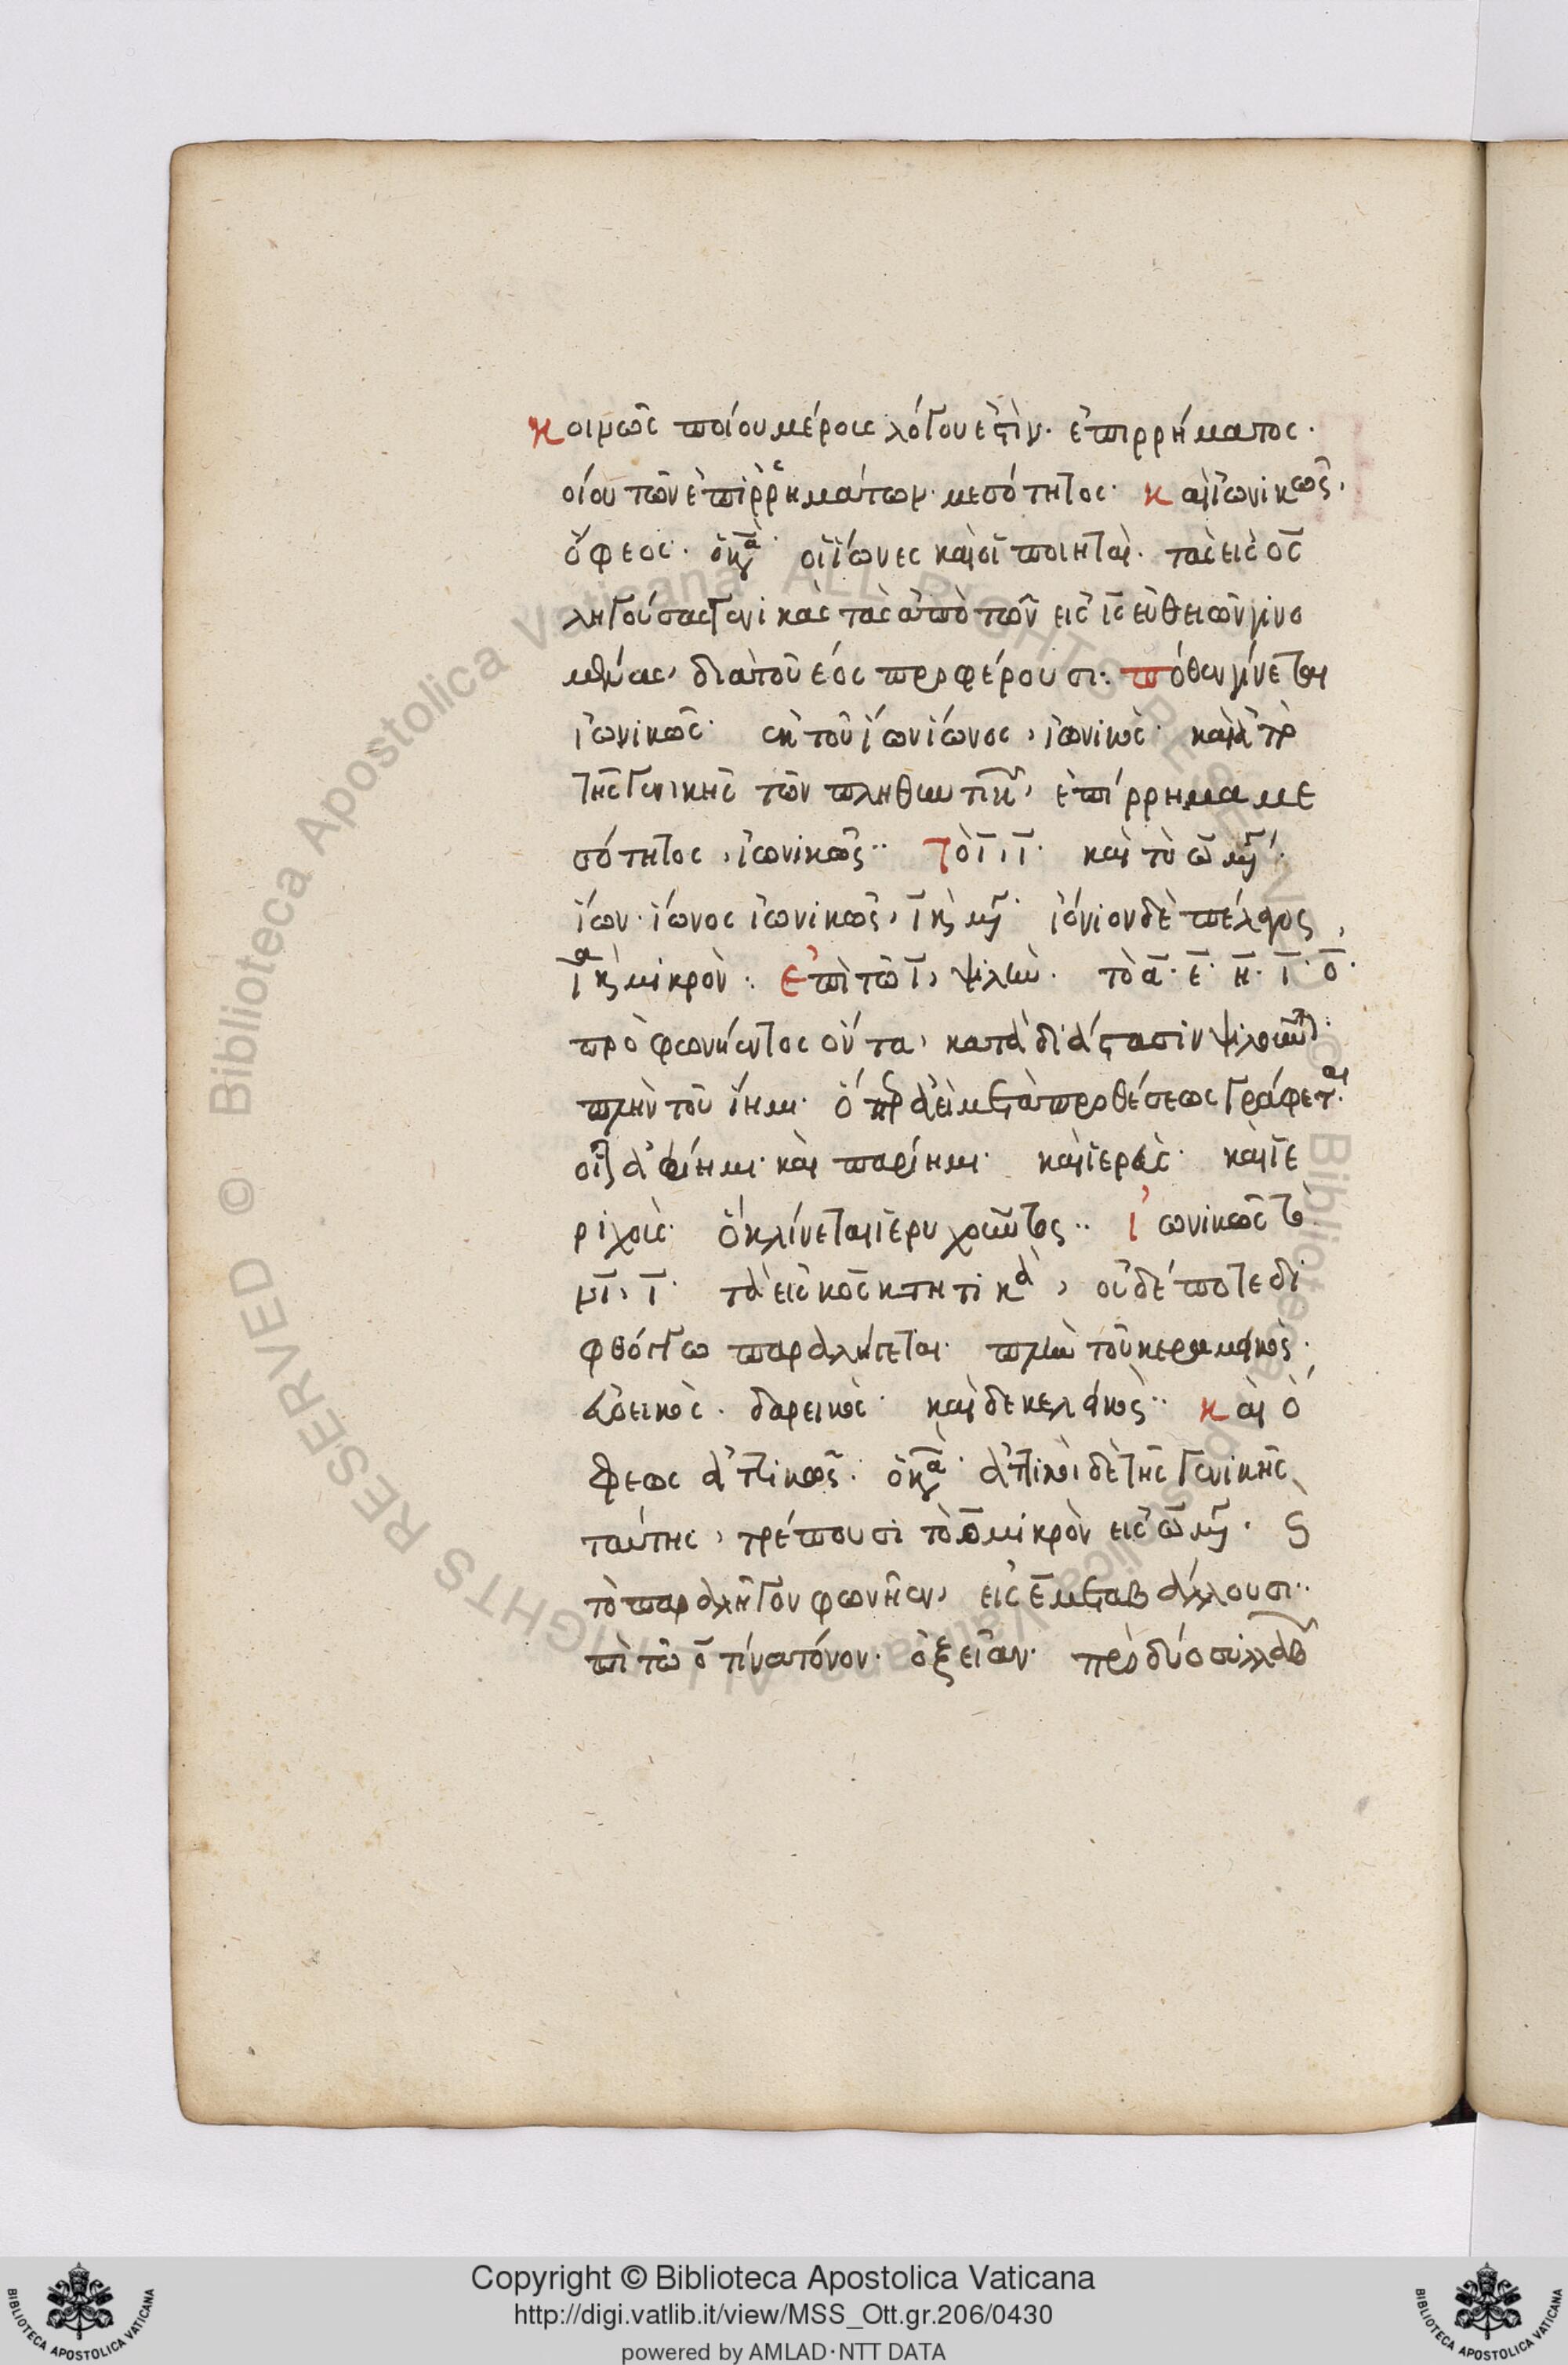 κοινῶς ποίου μέρους λόγου ἐστὶν· ἐπιρρήματος·
οίου τῶν ἐπιρρημάτων· μεσότητος· καὶ ἰωνικῶς,
ὄφεος· ὁ κανὼν· οἱ ἴωνες καὶ οἱ ποιηταὶ· τὰς εἰς ος
ληγούσας γενικὰς τὰς ἀπὸ τῶν εἰς ις εὐθειῶν γινο
μένας, διὰ τοῦ εος προφέρουσι· πόθεν γίνεται
ἰωνικῶς· ἐκ τοῦ ἴων ἴωνος, ἰωνικὸς· καὶ
τῆς γενικῆς τῶν πληθυντικῶν, ἐπίρρημα με
σότητος, ἰωνικῶς·· τὸ ι, ι· καὶ τὸ ω μέγα·
ἴων· ἴωνος ἰωνικῶς, ι καὶ μέγα· ἰόνιον δὲ πέλαγος,
ι καὶ μικρὸν· ἐπὶ τῶ ι, ψιλὴν· τὸ α· ε· η· ι· ο·
πρὸ φωνήεντος ὄντα, κατὰ διάστασιν ψιλοῦνται·
πλὴν τοῦ ἵημι· ὅπερ ἀεὶ μετὰ προθέσεως γράφεται·
οἷον ἀφίημι· καὶ παρίημι· καὶ ἱερεὺς· καὶ ἱε
ριχοῦς· ὃ κλίνεται ἱεριχοῦντος·· ἰωνικῶς τὸ
νι, ι· τὰ εἰς κος κτητικὰ, οὐδέποτε δι
φθόγγω παραλήγεται· πλὴν τοῦ κεραμεικὸς·
δαρεικὸς· καὶ δεκελεικὸς·· καὶ ὄ
φεως ἀττικῶς· ὁ κανὼν· ἀττικοὶ δὲ τῆς γενικῆς
ταύτης, τρέπουσι τὸ ο μικρὸν εἰς ω μέγα· καὶ
τὸ παραλῆγον φωνῆεν, εἰς ε μεταβάλλουσι··
πὶ τῶ ο τίνα τόνον· ὀξεῖαν· πρὸ δύο συλλαβῶν
Copyright © Biblioteca Apostolica Vaticana
http://digi.vatlib.it/view/MSS_Ott.gr.206/0430
powered by AMLAD·NTT DATA